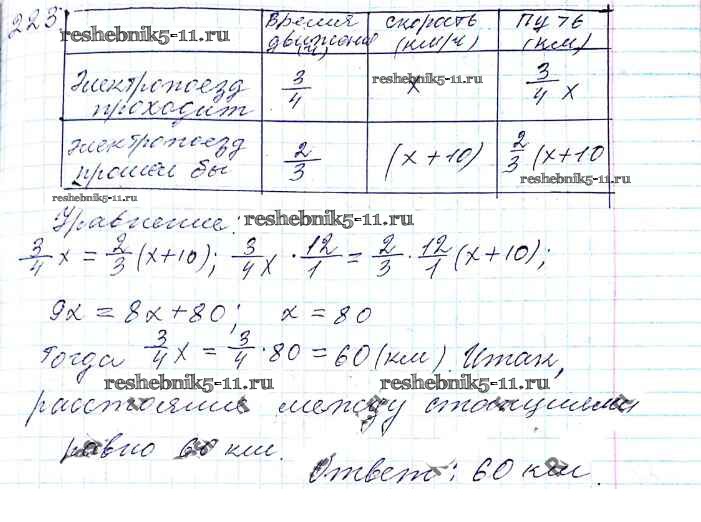 223
Время движения (ч)
скорость (км/ч)
путь (км)
reshebnik5-11.ru
Электропоезд проходит
3/4
x
3/4 x
reshebnik5-11.ru
Электропоезд прошел бы
2/3
(x+10)
2/3 (x+10
reshebnik5-11.ru
reshebnik5-11.ru
Уравнение: reshebnik5-11.ru
3/4 x = 2/3 (x+10); 3/4 x · 12/1 = 2/3 · 12/1 (x+10);
9x = 8x+80; x = 80
Тогда 3/4 x = 3/4 · 80 = 60 (км). Итак,
reshebnik5-11.ru reshebnik5-11.ru
расстояние между станциями
равно 60 км.
Ответ: 60 км.